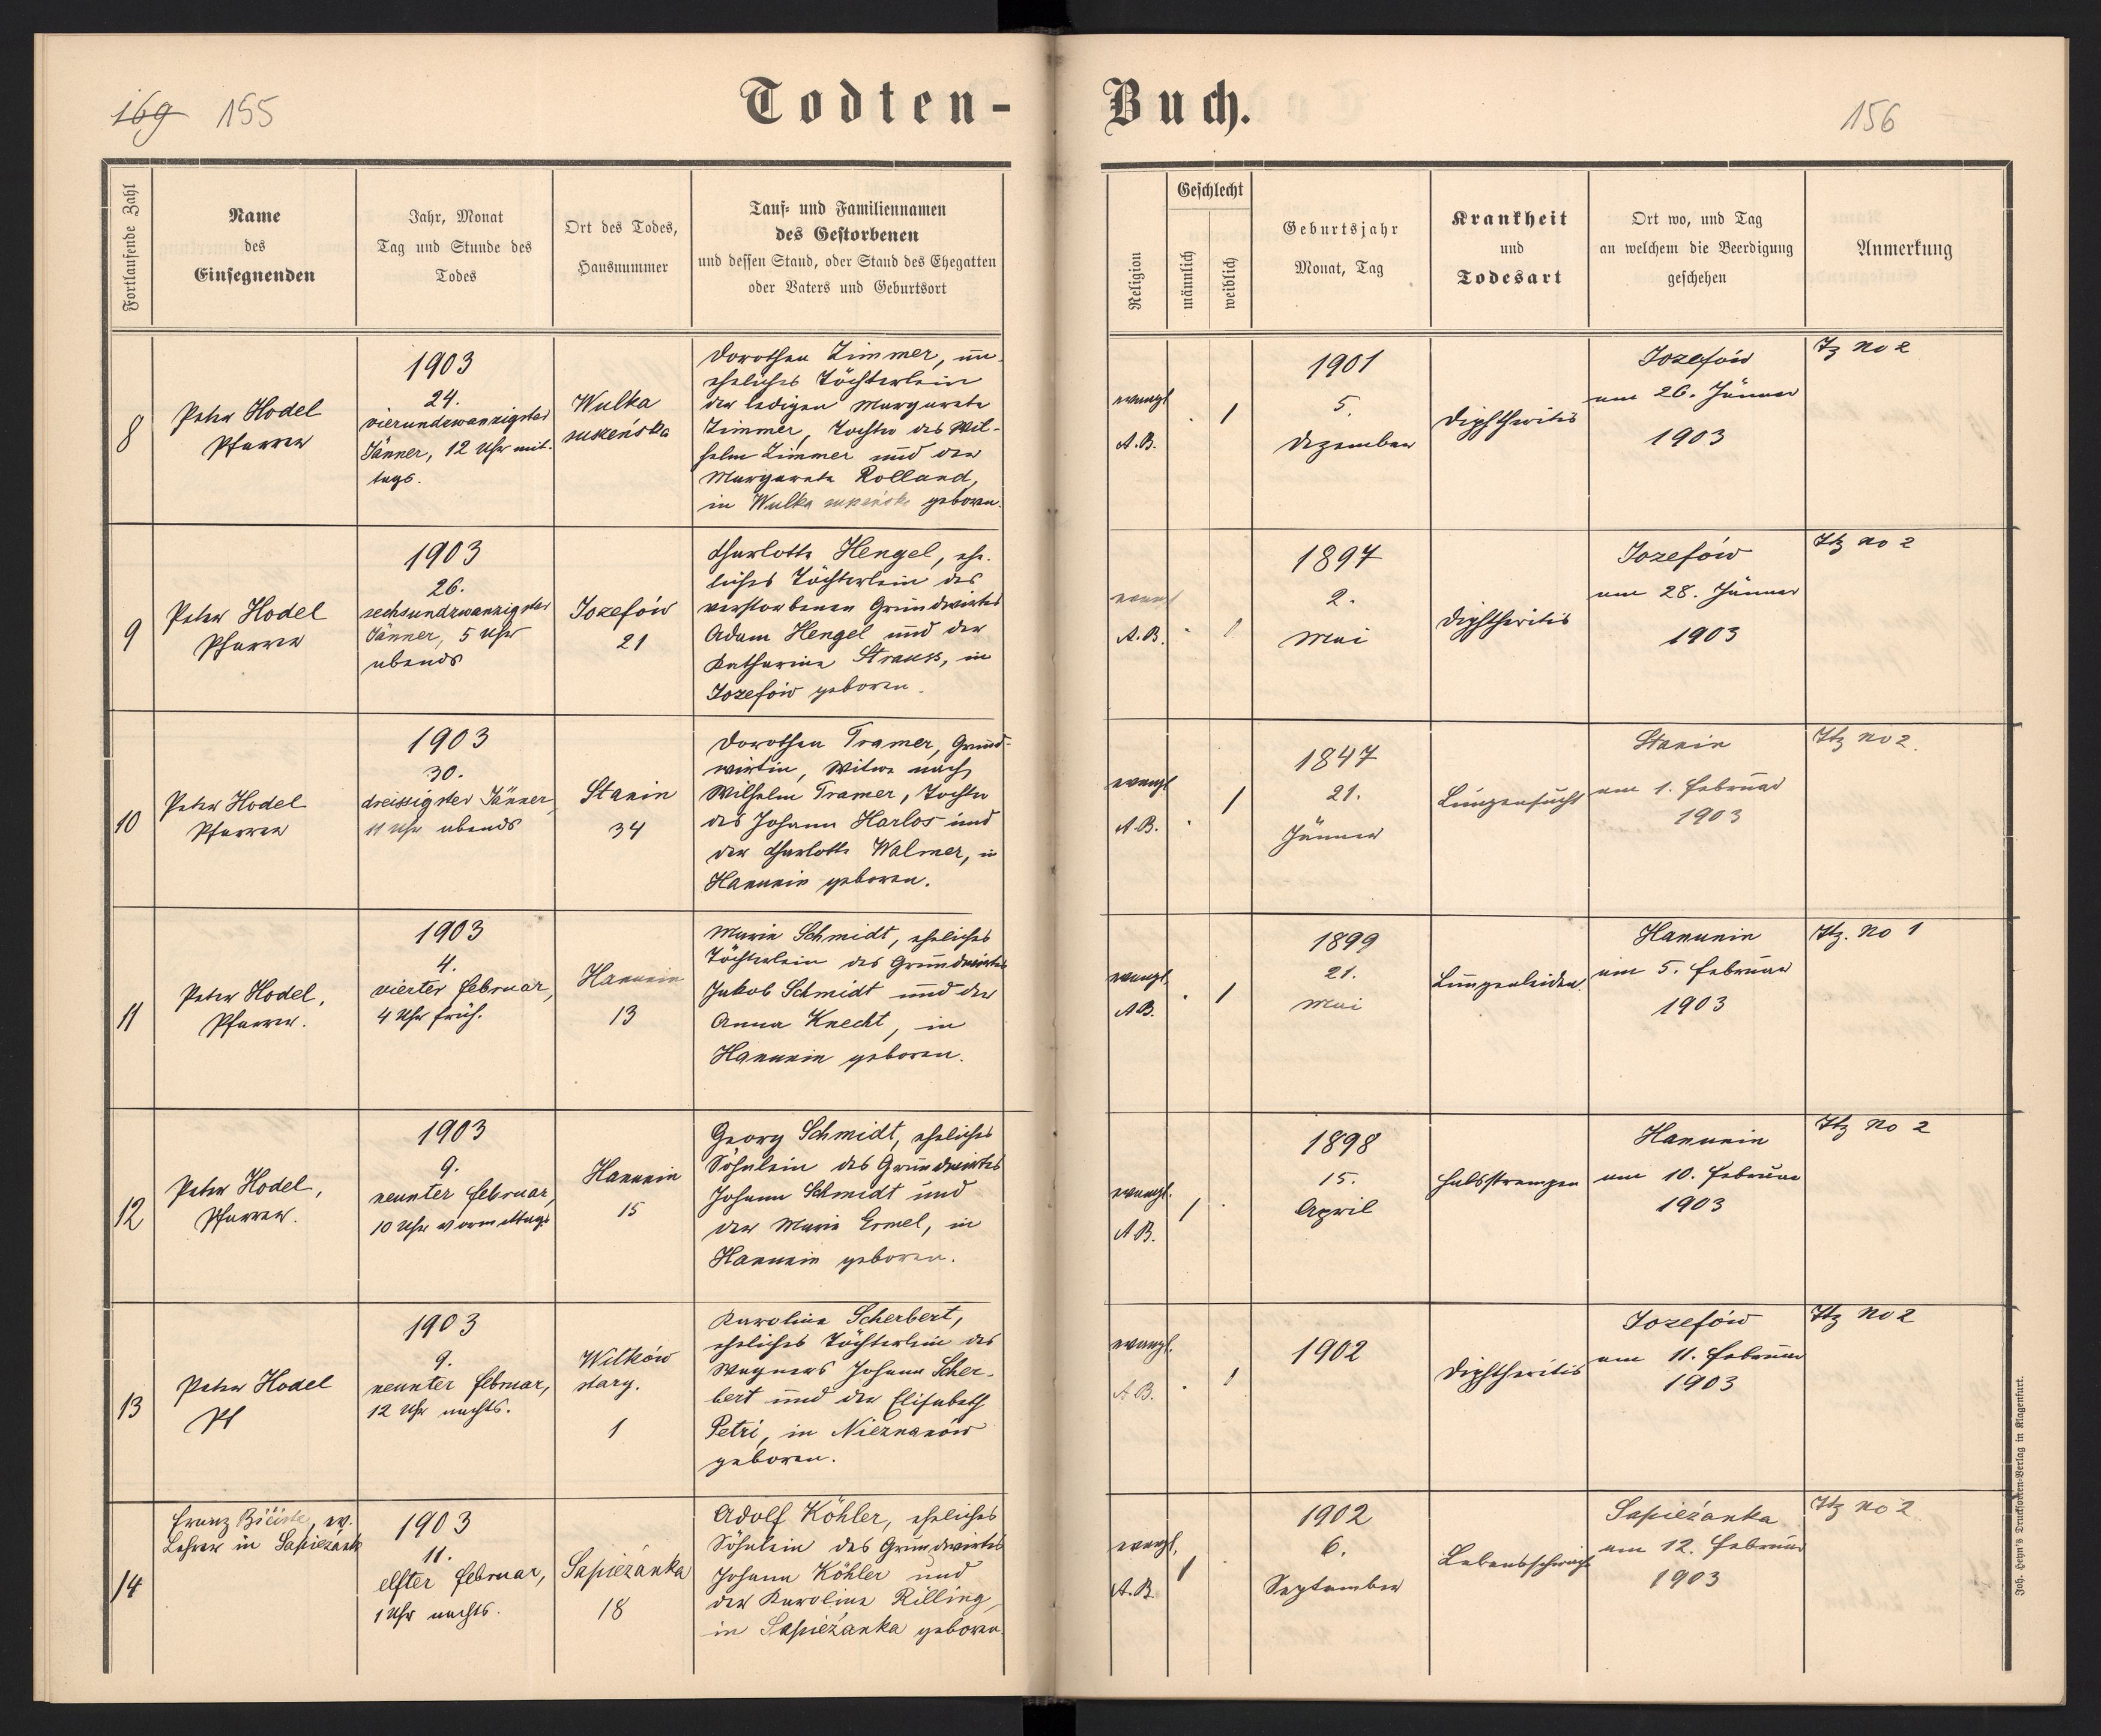 169 155
Todten-
Buch.
156
Fortlaufende Zahl
Name
des
Einsegnenden
Jahr, Monat
Tag und Stunde des
Todes
Ort des Todes,
Hausnummer
Tauf- und Familiennamen
des Gestorbenen
und dessen Stand, oder Stand des Ehegatten
oder Vaters und Geburtsort
Religion
Geschlecht
männlich
weiblich
Geburtsjahr
Monat, Tag
Krankheit
und
Todesart
Ort wo, und Tag
an welchem die Beerdigung
geschehen
Anmerkung
8
Peter Hodel
Pfarrer
1903
24.
vierundzwanzigster
Jänner, 12 Uhr mit-
tags.
Wulka
suszeńska
Dorothea Zimmer, un-
eheliches Töchterlein
der ledigen Margareta
Zimmer, Tochter des Wil-
helm Zimmer und der
Margareta Rolland,
in Wulka geboren.
evangl.
A.B.
1
1901
5.
Dezember
Diphtheritis
Jozefów
am 26. Jänner
1903
Itz No 2
9
Peter Hodel
Pfarrer
1903
26.
sechsundzwanzigster
Jänner, 5 Uhr
abends
Jozefów
21
Charlotte Hengel, ehe-
liches Töchterlein des
verstorbenen Grundwirtes
Adam Hengel und der
Katharina Strauss, in
Jozefów geboren.
evangl
A.B.
1
1897
2.
Mai
Diphtheritis
Jozefów
am 28. Jänner
1903
Itz no 2
10
Peter Hodel
Pfarrer
1903
30.
dreissigster Jänner,
11 Uhr abends
Stanin
34
Dorothea Tramer, Grund-
wirtin, Witwe nach
Wilhelm Tramer, Tochter
des Johann Harlos und
der Charlotte Walmer, in
Hanunin geboren.
evangl
A.B.
1
1847
21.
Jänner
Lungensucht
Stanin
am 1. Februar
1903
Itz no 2.
11
Peter Hodel,
Pfarrer.
1903
4.
vierter Februar,
4 Uhr früh.
Hanunin
13
Marie Schmidt, eheliches
Töchterlein des Grundwirtes
Jakob Schmidt und der
Anna Knecht, in
Hanunin geboren.
evangl.
A.B.
1
1899
21.
Mai
Lungenleiden.
Hanunin
am 5. Februar
1903
Itz. No 1
12
Peter Hodel,
Pfarrer.
1903
9.
neunter Februar,
10 Uhr vormittags
Hanunin
15
Georg Schmidt, eheliches
Söhnlein des Grundwirtes
Johann Schmidt und
der Marie Ermel, in
Hanunin geboren.
evangl.
A.B.
1
1898
15.
April
Hanunin
am 10. Februar
1903
Itz No 2
13
Peter Hodel
Pf
1903
9.
neunter Februar,
12 Uhr nachts.
Witków
stary.
1
Karolina Scherbert,
eheliches Töchterlein des
Wagners Johann Scher-
bert und der Elisabeth
Petri, in Nieznanów
geboren.
evangl.
A.B.
1
1902
Diphtheritis
Jozefów
am 11. Februar
1903
Itz No 2
14
Franz ev.
Lehrer in Sapieżank
1903
11.
elfter Februar,
1 Uhr nachts.
Sapieżanka
18
Adolf Köhler, eheliches
Söhnlein des Grundwirtes
Johann Köhler und
der Karolina Rilling,
in Sapieżanka geboren.
evangl.
A.B.
1
1902
6.
September
Lebensschwäche
Sapieżanka
am 12. Februar
1903
Itz no 2
Joh. Heyn's Drucksorten-Verlag in Klagenfurt.